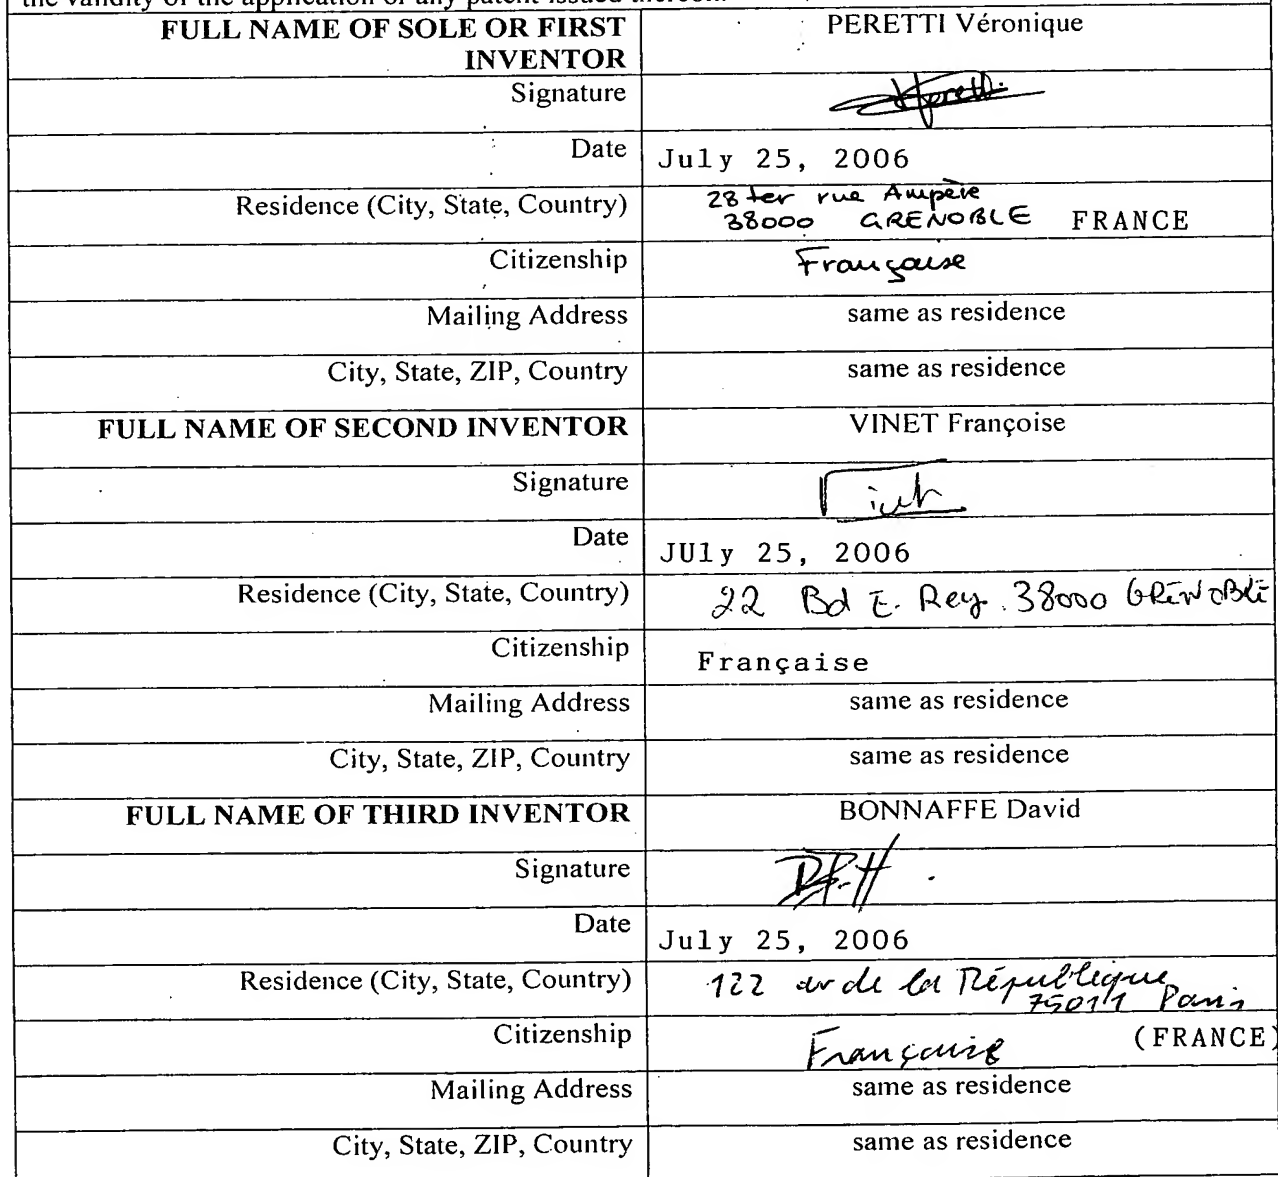 the validity of the application or any patent issued thereon.
FULL NAME OF SOLE OR FIRST INVENTOR PERETTI Véronique
Signature Peretti
Date July 25, 2006
Residence (City, State, Country) 28 ter rue Ampère
38000 GRENOBLE FRANCE
Citizenship Française
Mailing Address same as residence
City, State, ZIP, Country same as residence
FULL NAME OF SECOND INVENTOR VINET Françoise
Signature
Date JUly 25, 2006
Residence (City, State, Country) 22 Bd E. Rey 38000 GRENOBLE
Citizenship Française
Mailing Address same as residence
City, State, ZIP, Country same as residence
FULL NAME OF THIRD INVENTOR BONNAFFE David
Signature
Date July 25, 2006
Residence (City, State, Country) 122 av de la République
75011 Paris
Citizenship Française (FRANCE)
Mailing Address same as residence
City, State, ZIP, Country same as residence